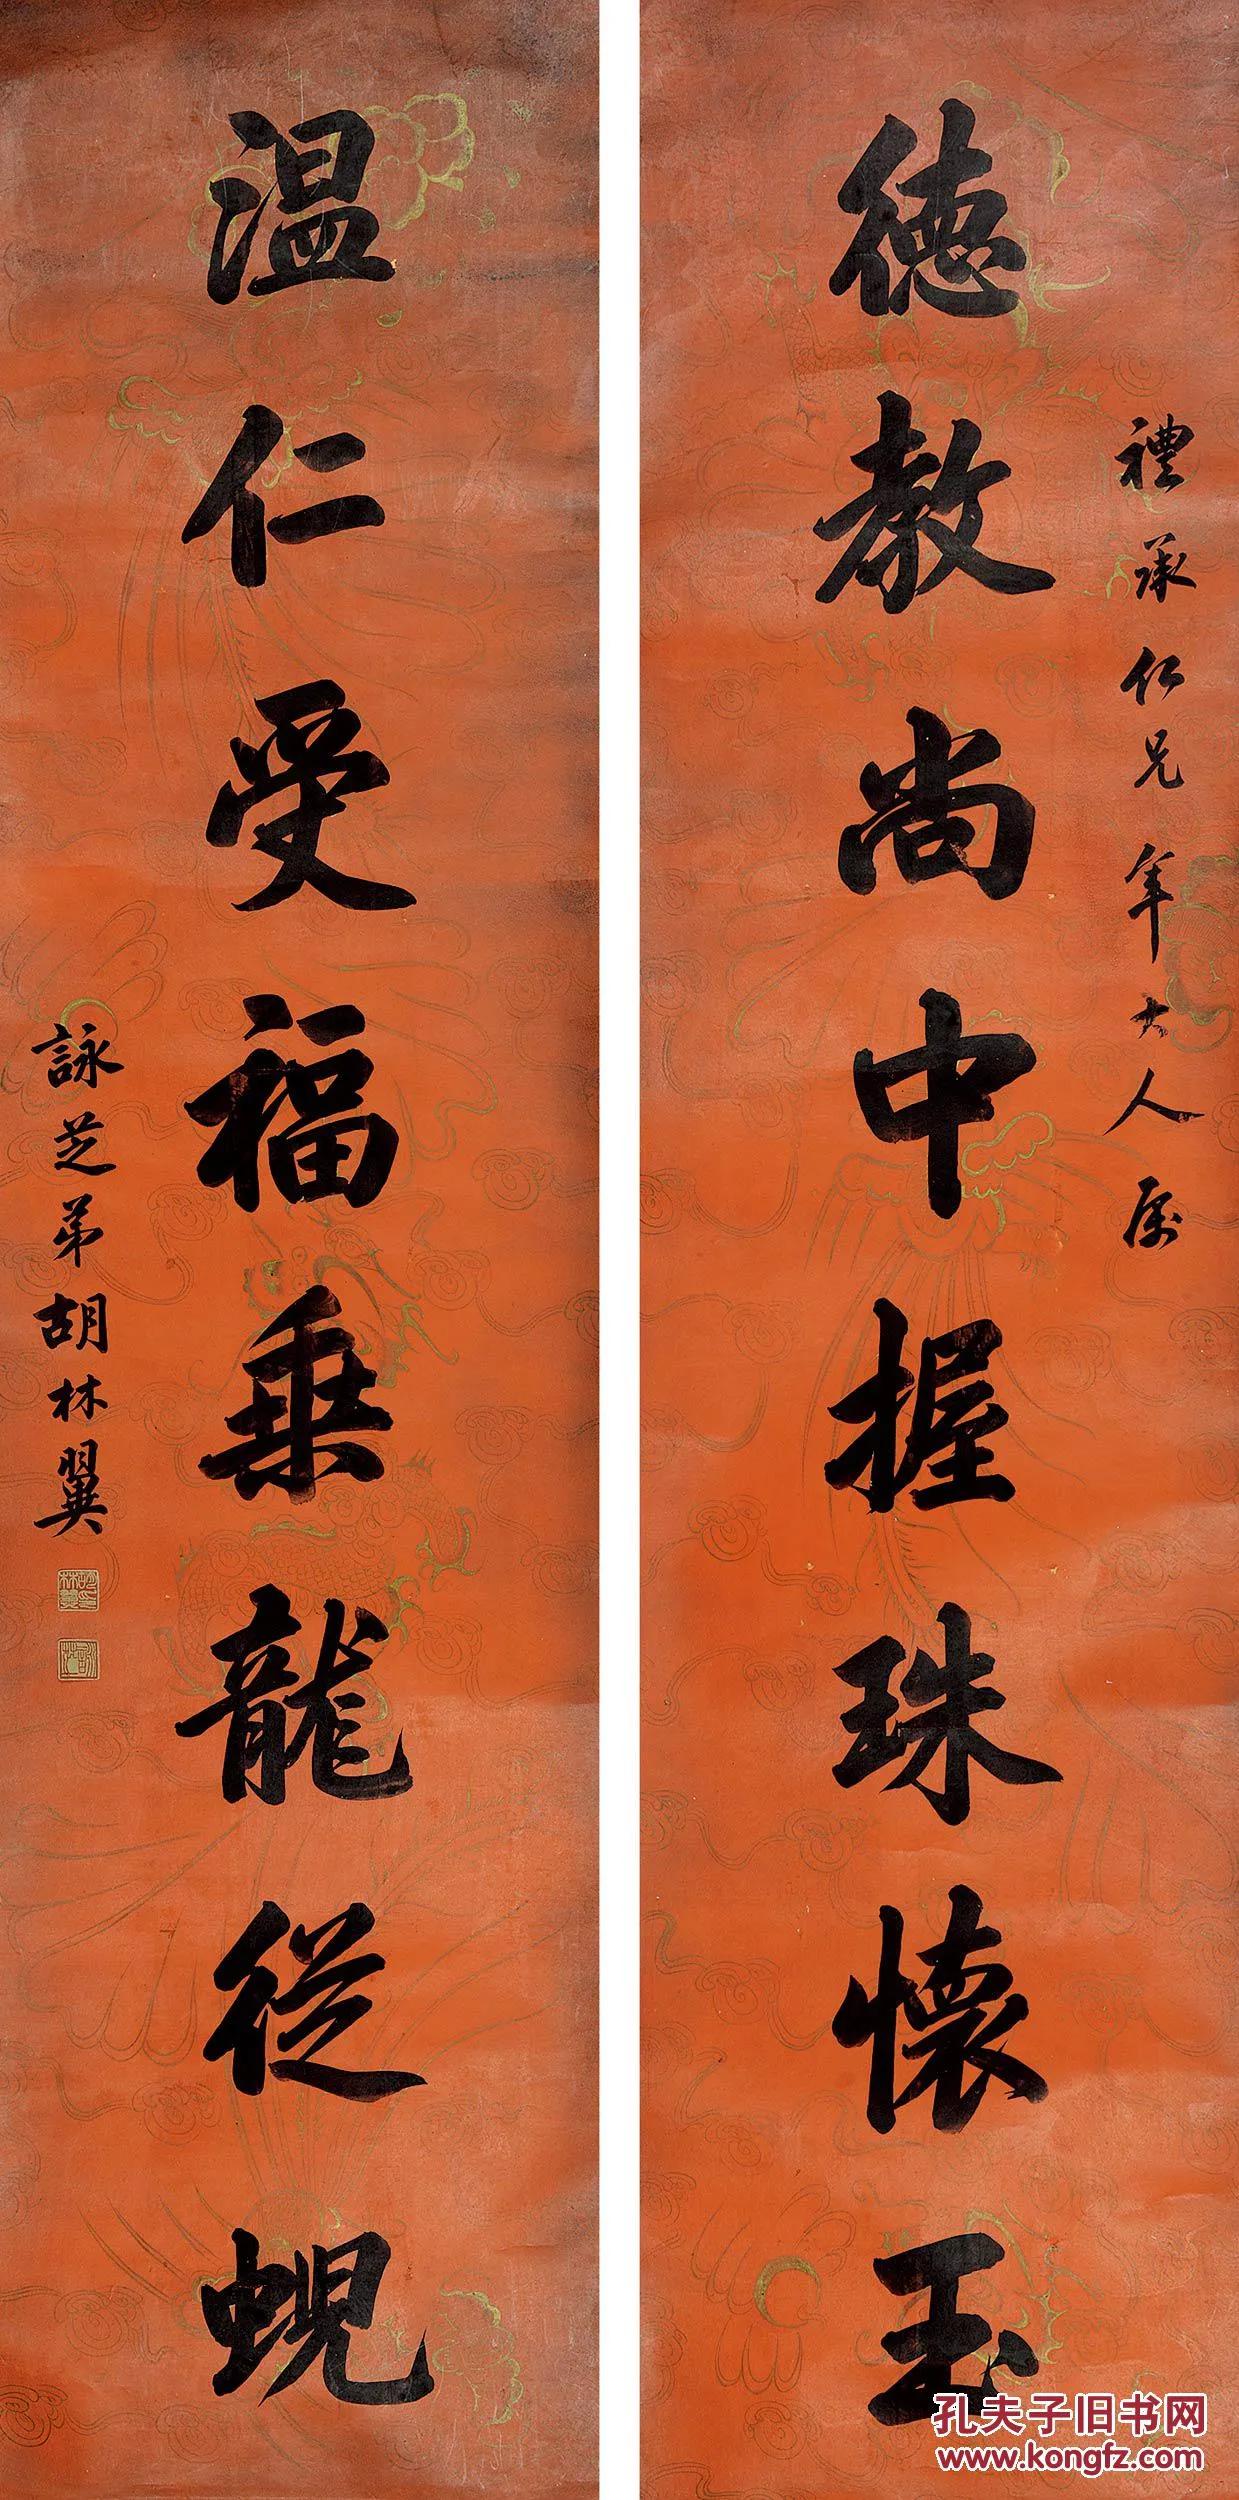 禮承仁兄年大人属
德教尚中握珠懷玉
温仁受福乗龍從蜺
詠芝弟胡林翼
孔夫子旧书网
www.kongfz.com